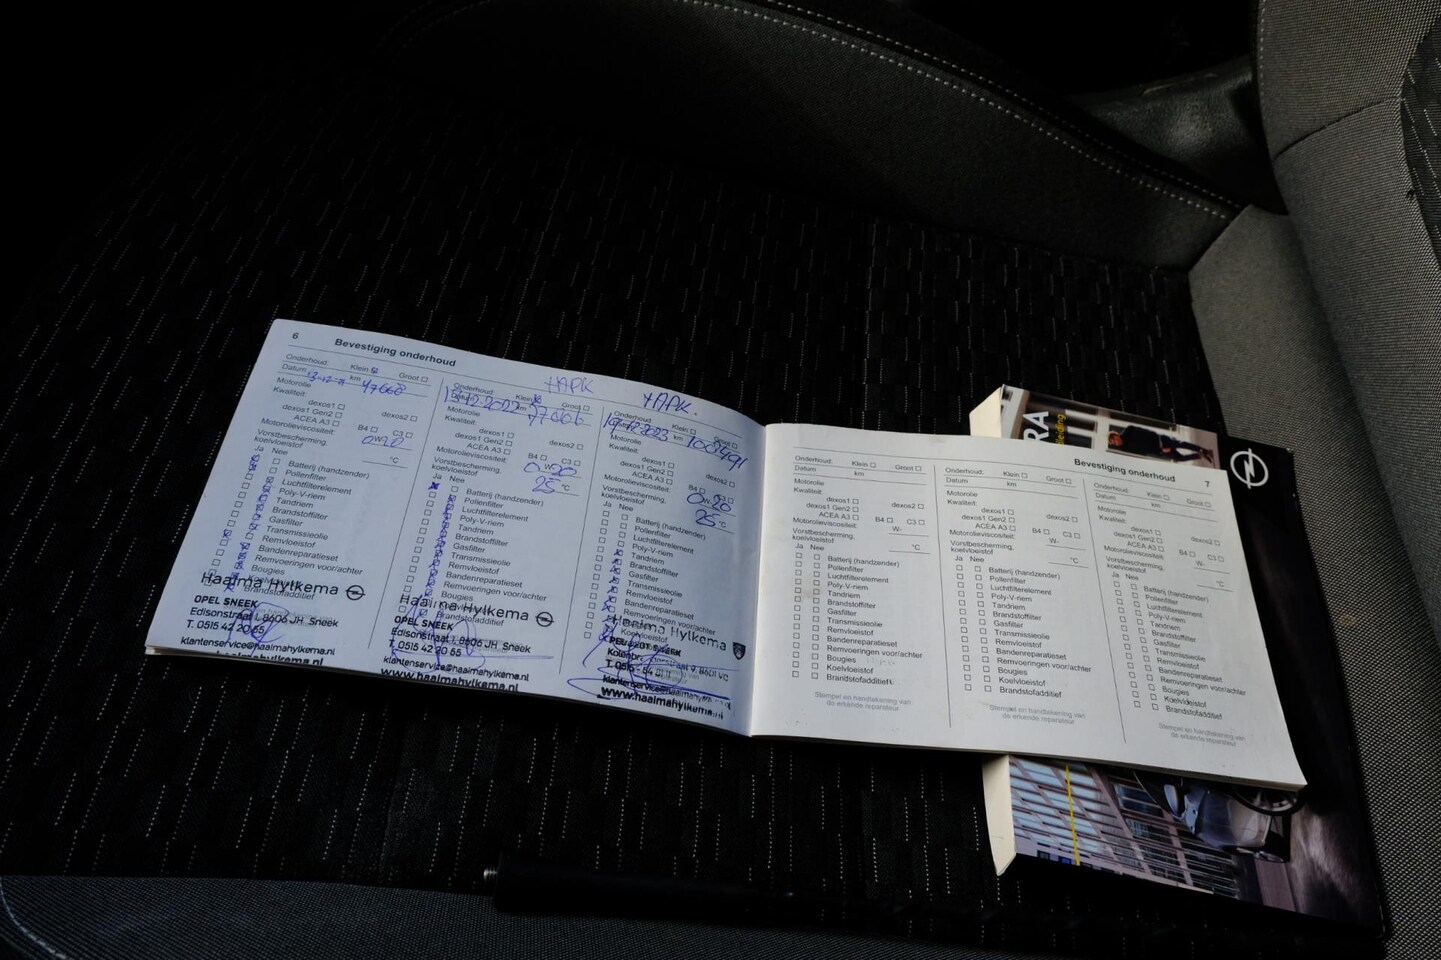 6
Bevestiging onderhoud
Onderhoud: Klein Groot
Datum 13-12-21 km 47660
Motorolie
Kwaliteit:
dexos1
dexos1 Gen2 dexos2
ACEA A3 B4 C3
Motorolieviscositeit: 0W-20
Vorstbescherming, koelvloeistof °C
Ja Nee
Batterij (handzender)
Pollenfilter
Luchtfilterelement
Poly-V-riem
Tandriem
Brandstoffilter
Gasfilter
Transmissieolie
Remvloeistof
Bandenreparatieset
Remvoeringen voor/achter
Bougies
Brandstofadditief
Haaima Hylkema
OPEL SNEEK
Edisonstraat 1, 8606 JH Sneek
T. 0515 42 20 65
klantenservice@haaimahylkema.nl
www.haaimahylkema.nl
+APK
Onderhoud: Klein Groot
Datum 13-12-2022 km 77066
Motorolie
Kwaliteit:
dexos1
dexos1 Gen2 dexos2
ACEA A3 B4 C3
Motorolieviscositeit: 0W-20
Vorstbescherming, koelvloeistof 25 °C
Ja Nee
Batterij (handzender)
Pollenfilter
Luchtfilterelement
Poly-V-riem
Tandriem
Brandstoffilter
Gasfilter
Transmissieolie
Remvloeistof
Bandenreparatieset
Remvoeringen voor/achter
Bougies
Brandstofadditief
Haaima Hylkema
OPEL SNEEK
Edisonstraat 1, 8606 JH Sneek
T. 0515 42 20 65
klantenservice@haaimahylkema.nl
www.haaimahylkema.nl
+APK.
Onderhoud: Klein Groot
km
Motorolie
Kwaliteit:
dexos1
dexos1 Gen2 dexos2
ACEA A3 B4 C3
Motorolieviscositeit: 0W-20
Vorstbescherming, koelvloeistof 25 °C
Ja Nee
Batterij (handzender)
Pollenfilter
Luchtfilterelement
Poly-V-riem
Tandriem
Brandstoffilter
Gasfilter
Transmissieolie
Remvloeistof
Bandenreparatieset
Remvoeringen voor/achter
Bougies
Koelvloeistof
Haaima Hylkema
klantenservice@haaimahylkema.nl
www.haaimahylkema.nl
Bevestiging onderhoud
7
Onderhoud: Klein Groot
Datum km
Motorolie
Kwaliteit:
dexos1
dexos1 Gen2 dexos2
ACEA A3 B4 C3
Motorolieviscositeit: W-
Vorstbescherming, koelvloeistof °C
Ja Nee
Batterij (handzender)
Pollenfilter
Luchtfilterelement
Poly-V-riem
Tandriem
Brandstoffilter
Gasfilter
Transmissieolie
Remvloeistof
Bandenreparatieset
Remvoeringen voor/achter
Bougies
Koelvloeistof
Brandstofadditief
Stempel en handtekening van de erkende reparateur
Onderhoud: Klein Groot
Datum km
Motorolie
Kwaliteit:
dexos1
dexos1 Gen2 dexos2
ACEA A3 B4 C3
Motorolieviscositeit: W-
Vorstbescherming, koelvloeistof °C
Ja Nee
Batterij (handzender)
Pollenfilter
Luchtfilterelement
Poly-V-riem
Tandriem
Brandstoffilter
Gasfilter
Transmissieolie
Remvloeistof
Bandenreparatieset
Remvoeringen voor/achter
Bougies
Koelvloeistof
Brandstofadditief
Stempel en handtekening van de erkende reparateur
Onderhoud: Klein Groot
Datum km
Motorolie
Kwaliteit:
dexos1
dexos1 Gen2 dexos2
ACEA A3 B4 C3
Motorolieviscositeit: W-
Vorstbescherming, koelvloeistof °C
Ja Nee
Batterij (handzender)
Pollenfilter
Luchtfilterelement
Poly-V-riem
Tandriem
Brandstoffilter
Gasfilter
Transmissieolie
Remvloeistof
Bandenreparatieset
Remvoeringen voor/achter
Bougies
Koelvloeistof
Brandstofadditief
Stempel en handtekening van de erkende reparateur